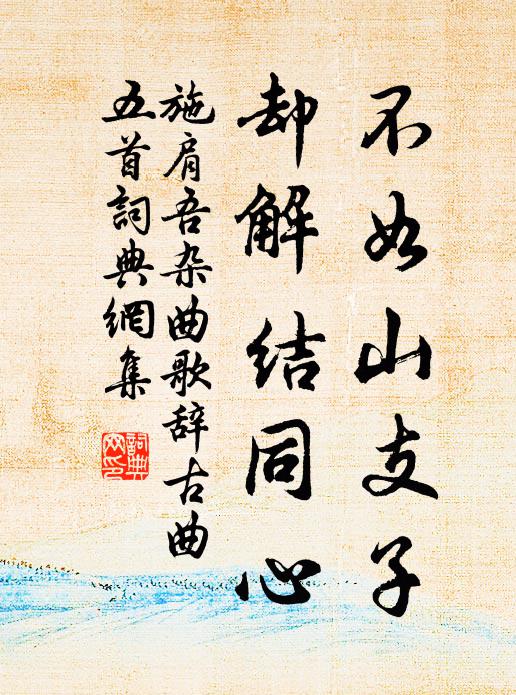 不如山支子
却解结同心
施肩吾杂曲歌辞古曲
五首詞典網集
詞典
网印